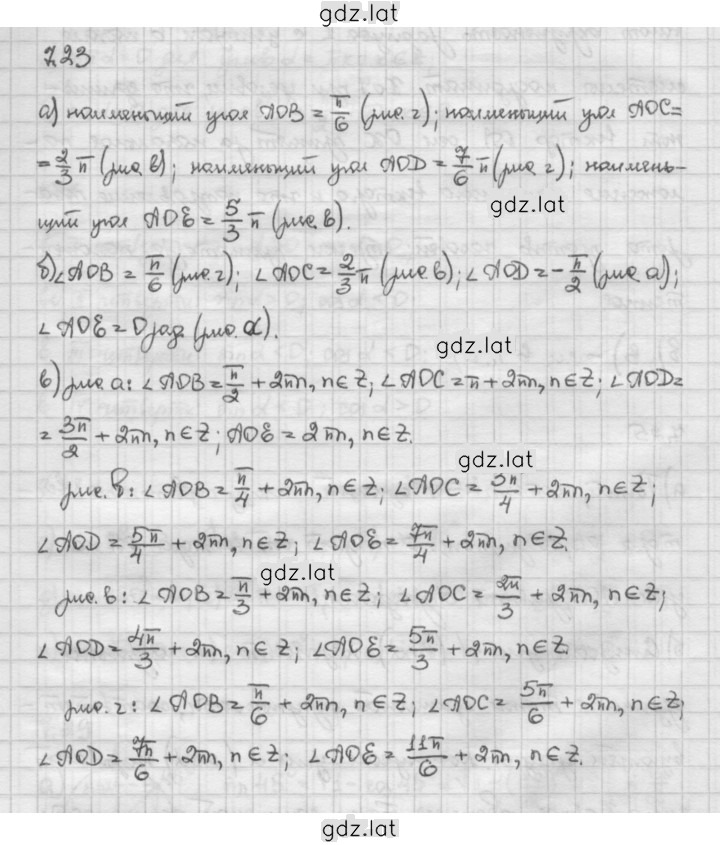 gdz.lat
7.23
а) наименьший угол AOB = π/6 (рис. г); наименьший угол AOC=
= 2/3 π (рис. в); наименьший угол AOD = 7/6 π (рис. г); наимень-
gdz.lat
ший угол AOE = 5/3 π (рис. в).
б) ∠AOB = π/6 (рис. г); ∠AOC = 2/3 π (рис. в); ∠AOD = -π/2 (рис. а);
∠AOE = 0 рад. (рис. а).
gdz.lat
в) рис. а: ∠AOB = π/2 + 2πn, n∈Z; ∠AOC = π + 2πn, n∈Z; ∠AOD=
= 3π/2 + 2πn, n∈Z; AOE = 2πn, n∈Z.
gdz.lat
рис. б: ∠AOB = π/4 + 2πn, n∈Z; ∠AOC = 3π/4 + 2πn, n∈Z;
∠AOD = 5π/4 + 2πn, n∈Z; ∠AOE = 7π/4 + 2πn, n∈Z.
gdz.lat
рис. в: ∠AOB = π/3 + 2πn, n∈Z; ∠AOC = 2π/3 + 2πn, n∈Z;
∠AOD = 4π/3 + 2πn, n∈Z; ∠AOE = 5π/3 + 2πn, n∈Z.
рис. г: ∠AOB = π/6 + 2πn, n∈Z; ∠AOC = 5π/6 + 2πn, n∈Z;
∠AOD = 7π/6 + 2πn, n∈Z; ∠AOE = 11π/6 + 2πn, n∈Z.
gdz.lat